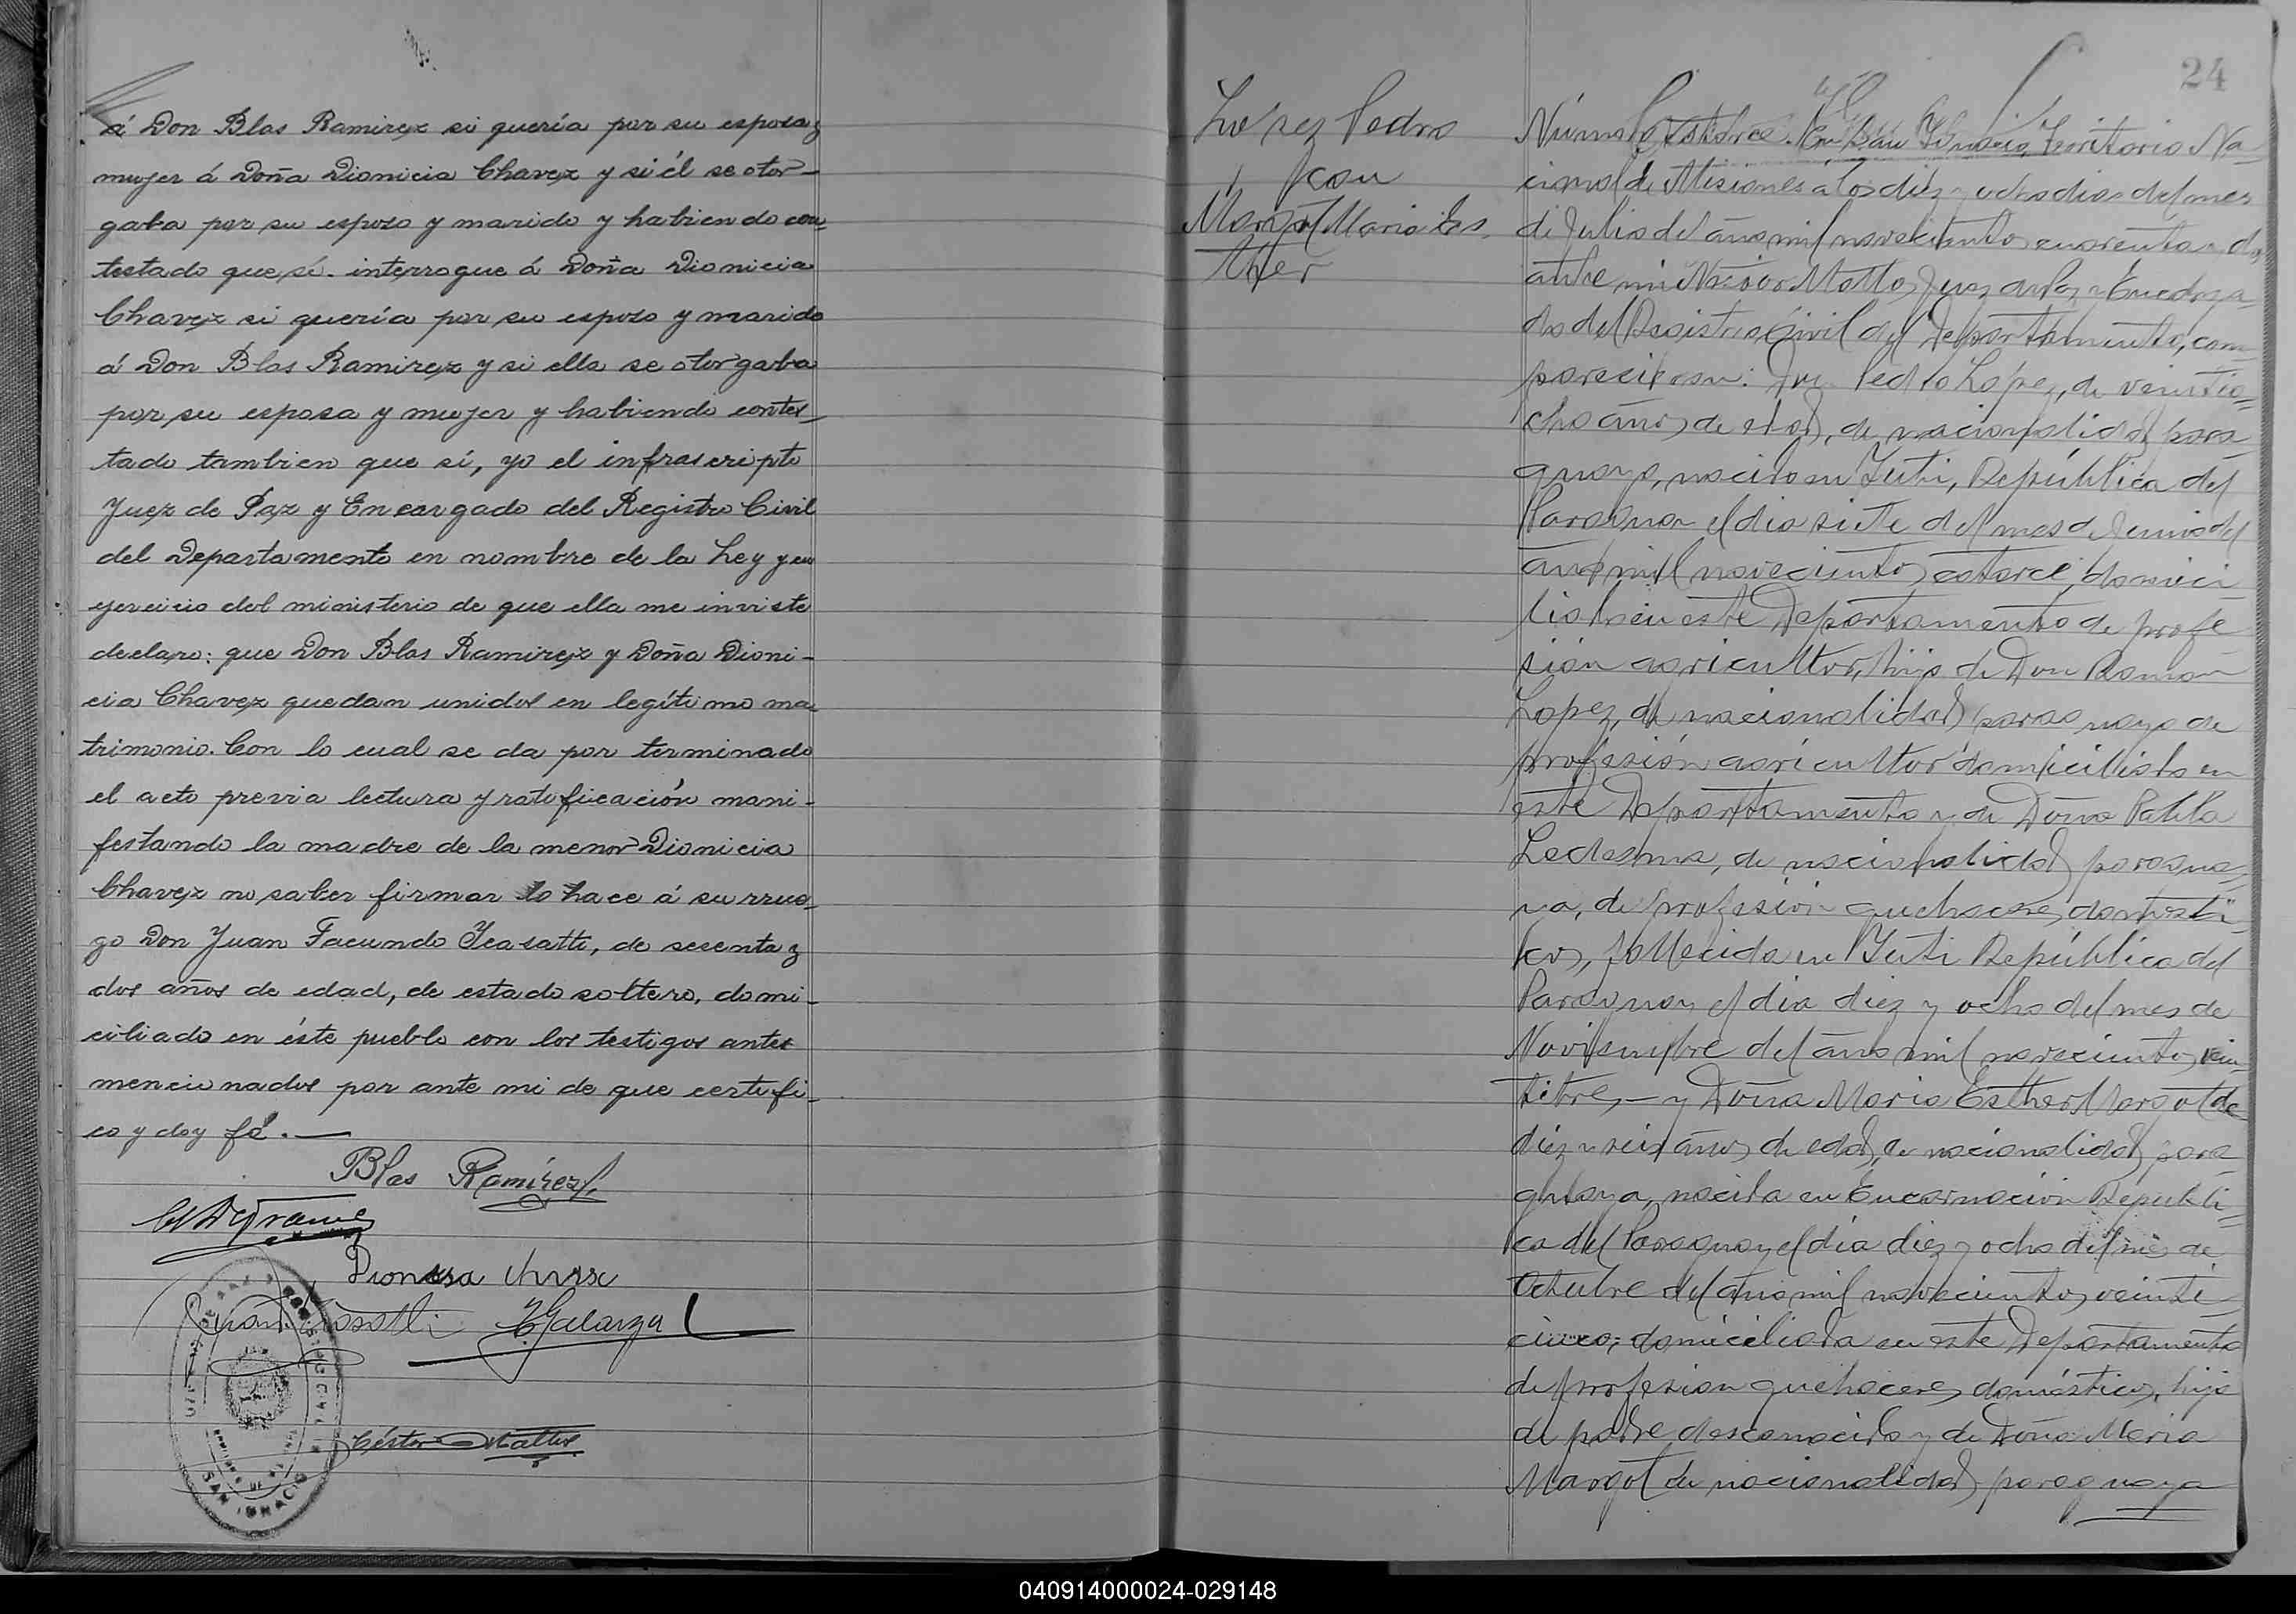 á Don Blas Ramirez si quería por su esposa y
mujer á Doña Dionicia Chavez y si él se otor-
gaba por su esposo y marido y habiendo con-
testado que sí. interrogue á Doña Dionicia
Chavez si quería por su esposo y marido
á Don Blas Ramirez y si ella se otorgaba
por su esposa y mujer y habiendo contes-
tado tambien que sí, yo el infrascripto
Juez de Paz y Encargado del Registro Civil
del Departamento en nombre de la Ley y en
ejercicio del ministerio de que ella me inviste
declaro: que Don Blas Ramirez y Doña Dioni-
cia Chavez quedan unidos en legítimo ma-
trimonio. Con lo cual se da por terminado
el acto previa lectura y ratificación mani-
festando la madre de la menor Dionicia
Chavez no saber firmar lo hace á su rrue-
go Don Juan Facundo Icasatti, de sesenta y
dos años de edad, de estado soltero, domi-
ciliado en éste pueblo con los testigos antes
mencionados por ante mi de que certifi-
co y doy fé.—
Blas Ramírez
Galarza
Néstor Mattos
SAN IGNACIO
24
Lopez Pedro
con
Margot Maria Es-
ther
Número Catorce. En San Ignacio, Territorio Na-
cional de Misiones á los diez y ocho dias del mes
de Julio del año mil novecientos cuarenta y dos
ante mi Néstor Mattos, Juez de Paz y Encarga-
do del Registro Civil del Departamento, com-
parecieron: Don Pedro Lopez, de veintio-
cho años de edad, de nacionalidad para-
guayo, nacido en Yuti, República del
Paraguay el dia siete del mes de Junio del
año mil novecientos catorce, domici-
liado en este Departamento de profe-
sión agricultor, hijo de Don Ramon
Lopez, de nacionalidad paraguayo de
profesión agricultor domiciliado en
este Departamento y de Doña Pabla
Ledesma, de nacionalidad paragua-
ya, de profesión quehaceres domésti-
cos, fallecida en Yuti República del
Paraguay el dia diez y ocho del mes de
Noviembre del año mil novecientos vein-
titres,— y Doña Maria Esther Margot de
diez y seis años de edad, de nacionalidad para-
guaya, nacida en Encarnación Repúbli-
ca del Paraguay el día diez y ocho del mes de
Octubre del año mil novecientos veinti-
cinco, domiciliada en este Departamento
de profesion quehaceres domésticos, hija
de padre desconocido y de Doña Maria
Margot de nacionalidad paraguaya
040914000024-029148